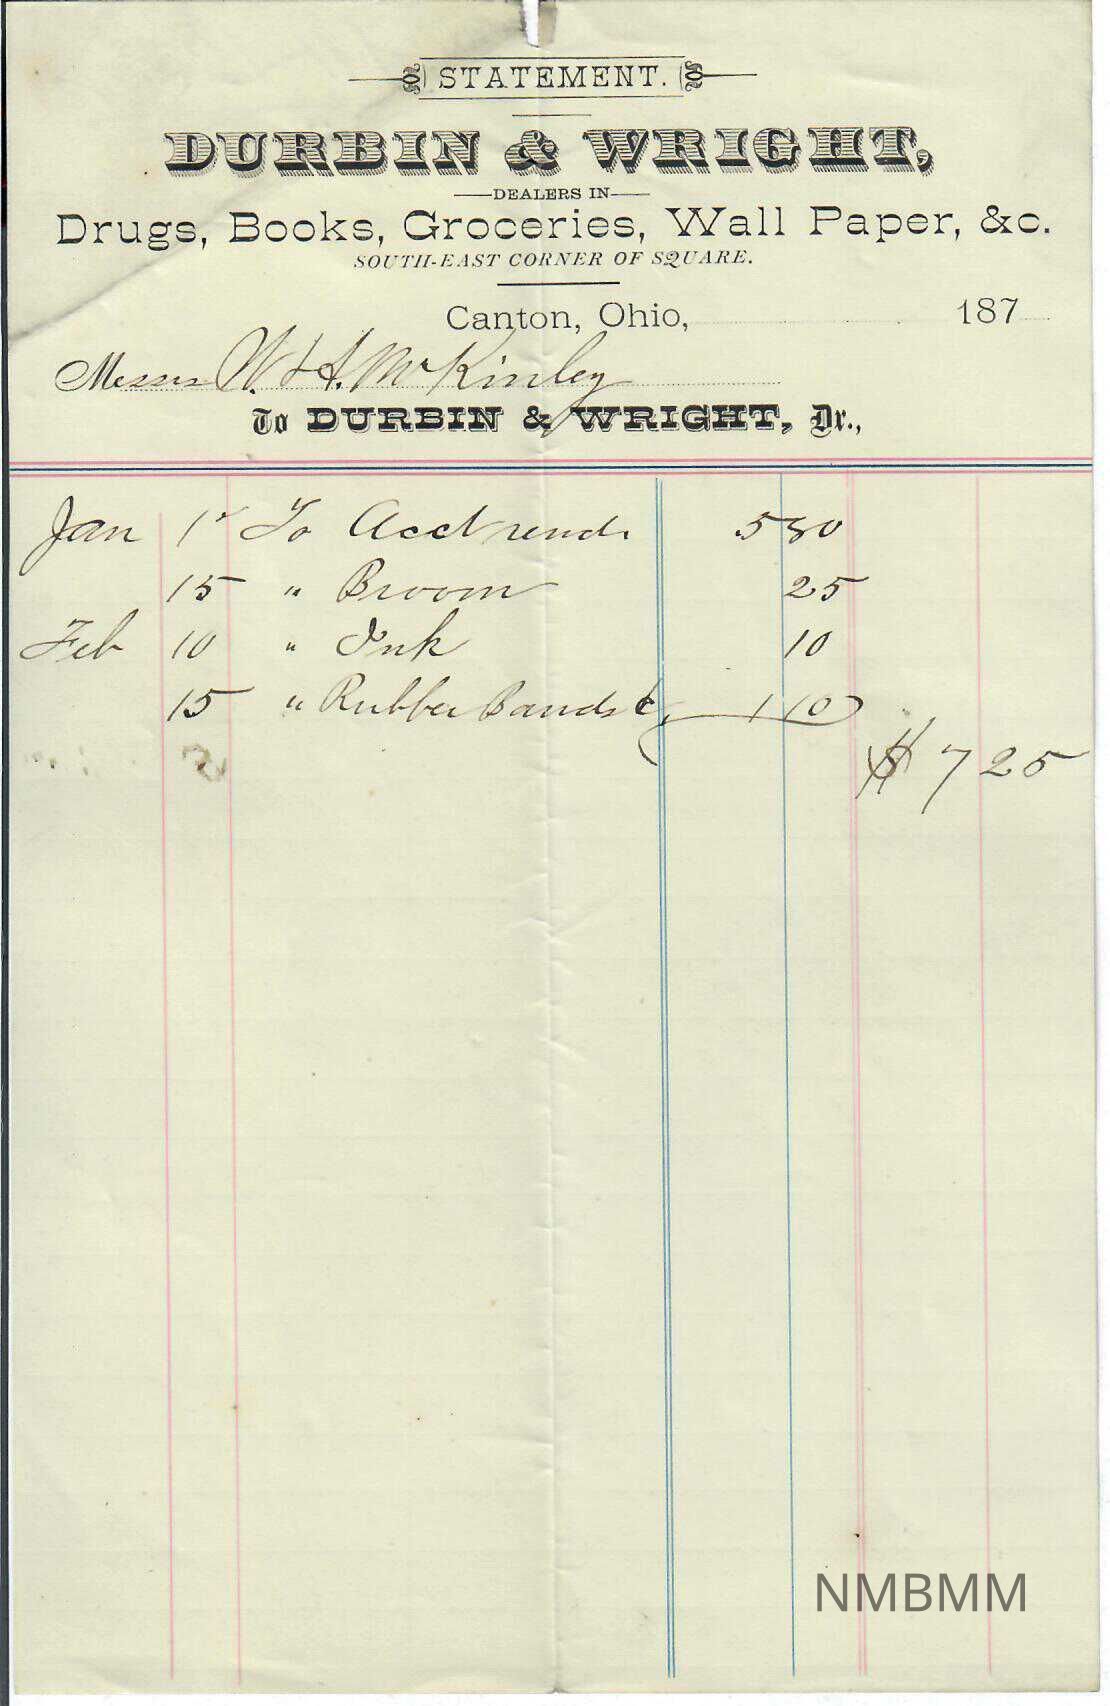 STATEMENT.
DURBIN & WRIGHT,
DEALERS IN
Drugs, Books, Groceries, Wall Paper, &c.
SOUTH-EAST CORNER OF SQUARE.
Canton, Ohio, 187
Messrs W. & A. McKinley
To DURBIN & WRIGHT, Dr.,
Jan 1 To Acct rend. 5 80
15 " Broom 25
Feb 10 " Ink 10
15 " Rubber Bands &c, 1 10
$ 7 25
NMBMM